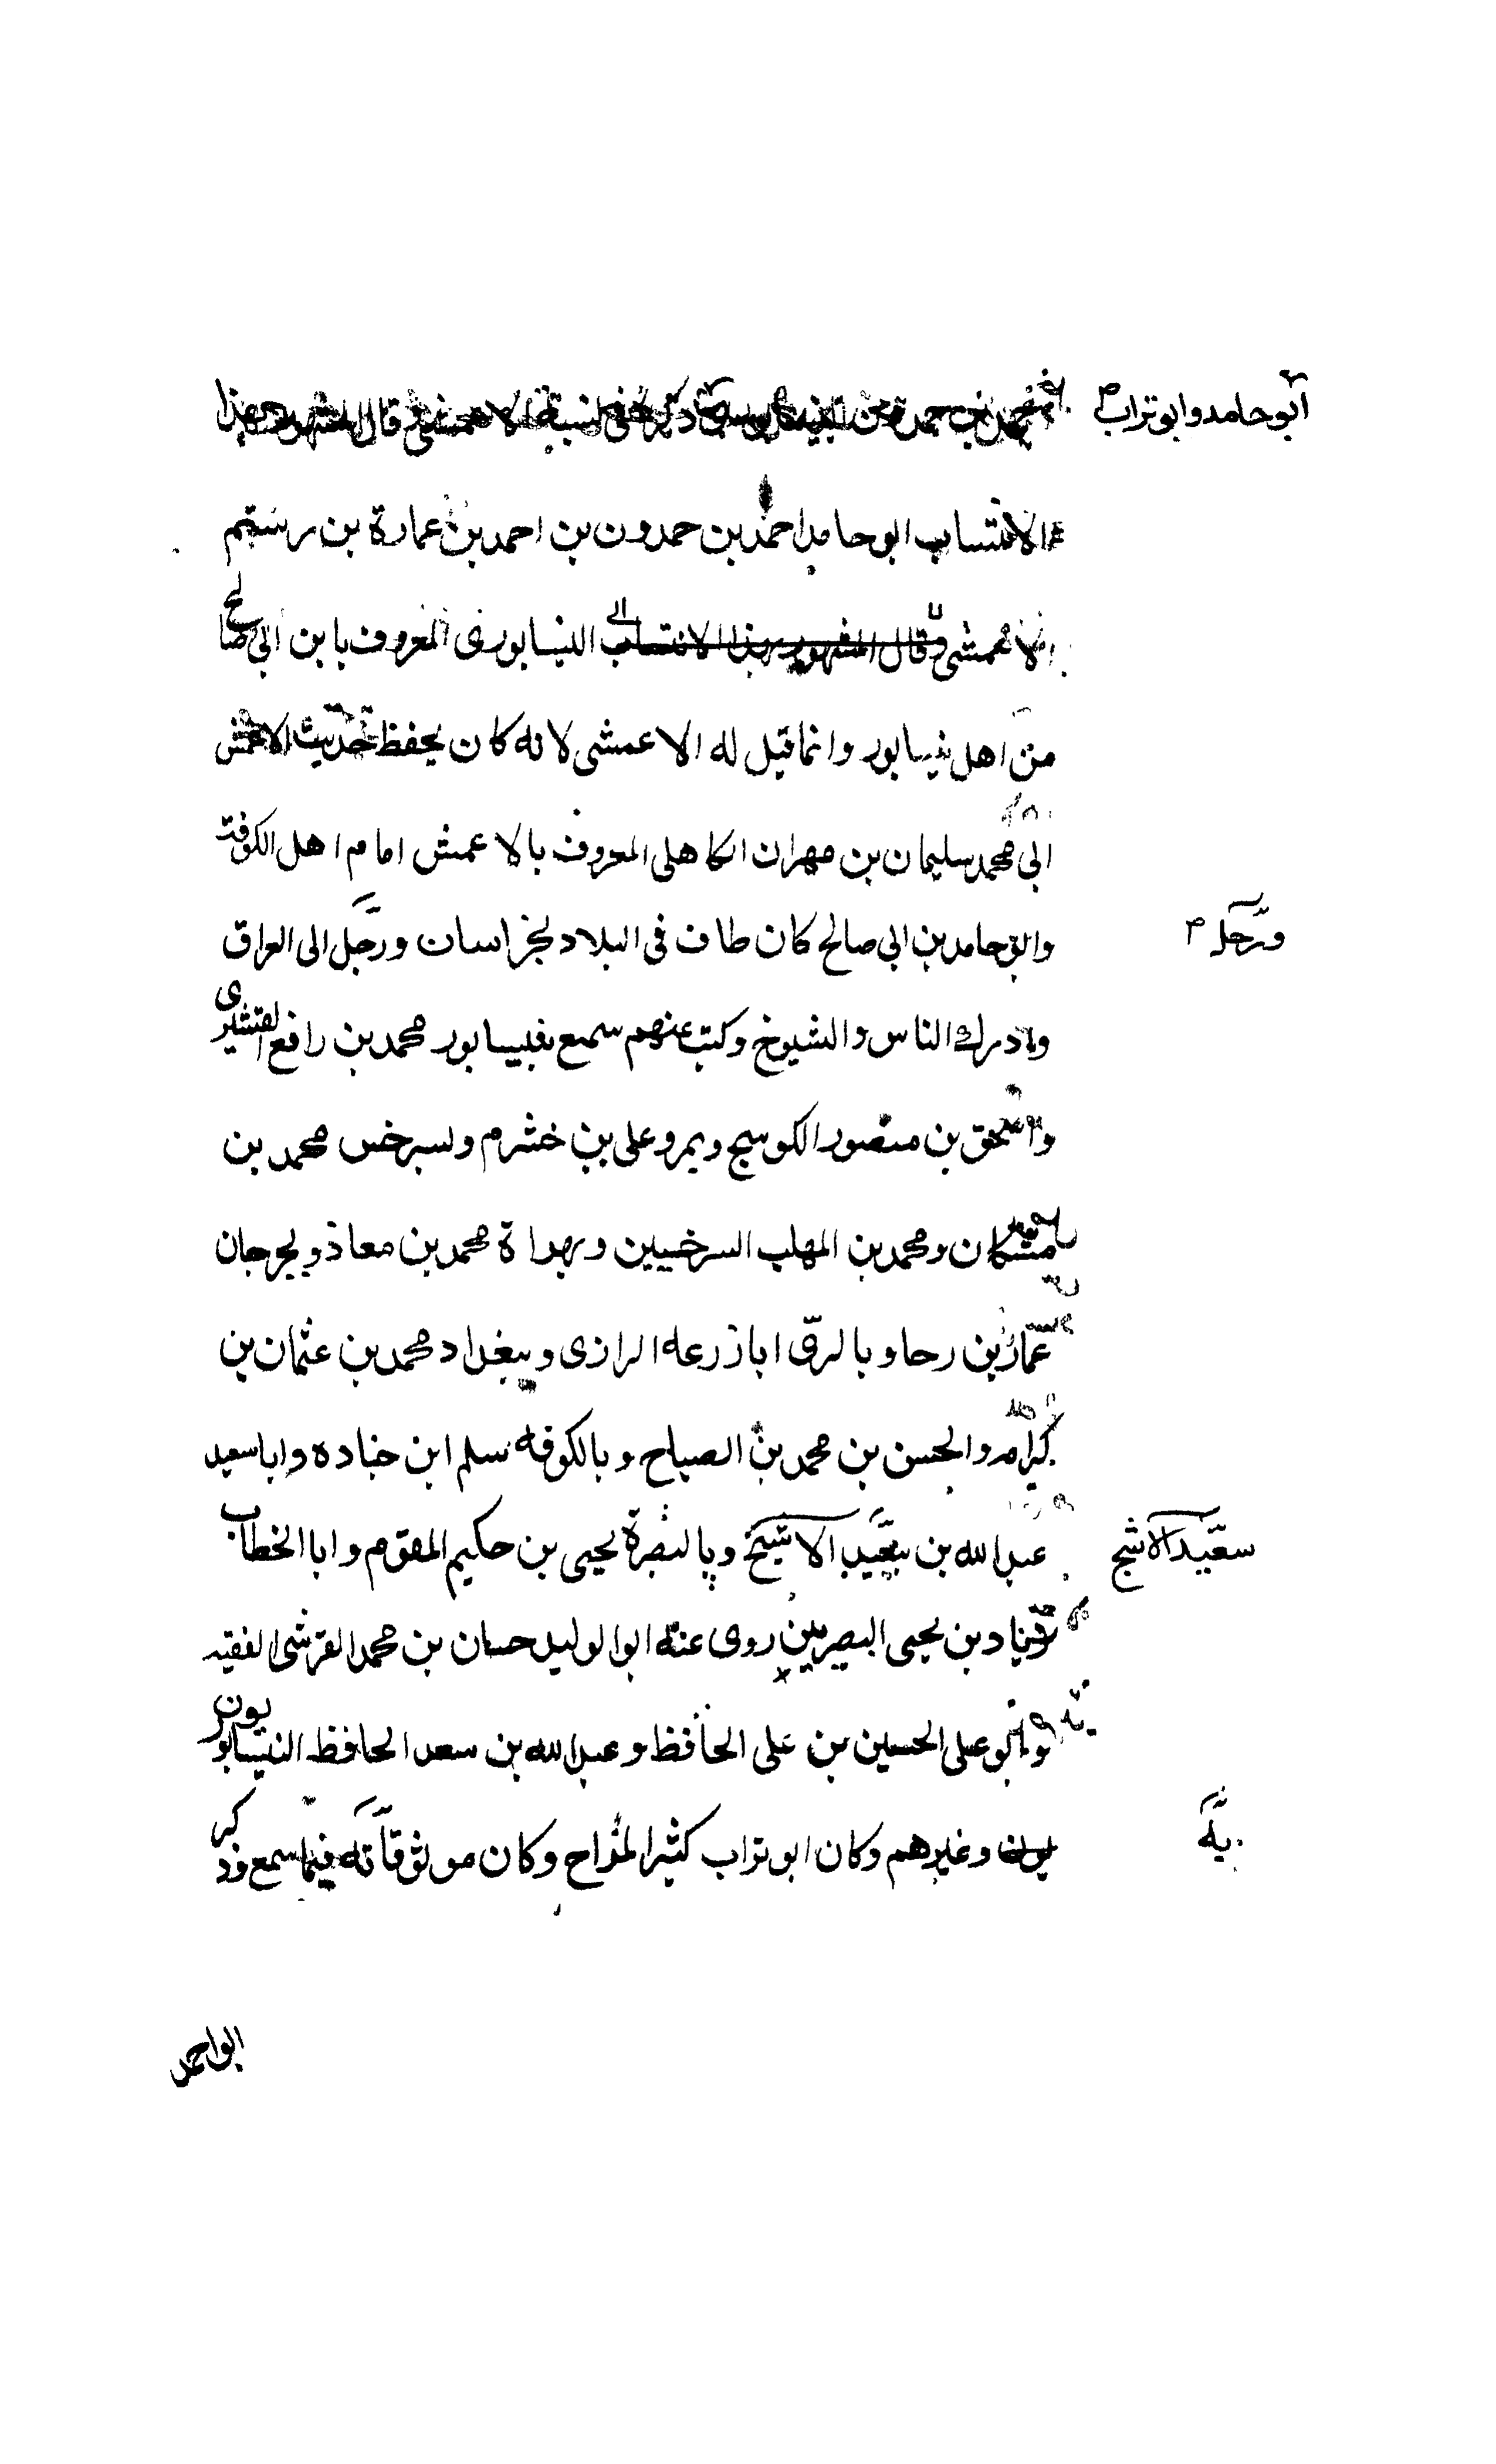 ابو حامد وابو تراب
محمد بن حمدون النيسابوري ذكره في نسبة الاعمشي وقال المشهور بهذا
الانتساب ابو حامد احمد بن حمدون بن احمد بن عمارة بن رستم
الاعمشي وقال المشهور بهذا الانتساب الى النيسابورى المعروف بابن ابى صالح
من اهل نيسابور وانما قيل له الاعمشى لانه كان يحفظ حديث الاعمش
ابى محمد سليمان بن مهران الكاهلى المعروف بالاعمش امام اهل الكوفة
وابو حامد بن ابى صالح كان طاف فى البلاد بخراسان ورحل الى العراق
ورحل
وادرك الناس والشيوخ وكتب عنهم سمع بنيسابور محمد بن رافع القشيرى
واسحق بن منصور الكوسج وبمرو على بن خشرم وبسرخس محمد بن
مشكان ومحمد بن المهلب السرخسيين وبهراة محمد بن معاذ وبجرجان
عمار بن رحا وبالرى ابا زرعه الرازى وببغداد محمد بن عثمان بن
كرامه والحسن بن محمد بن الصباح وبالكوفه سلم ابن جناده وابا سعيد
عبد الله بن سعيد الاشج وبالبصرة يحيى بن حكيم المقوم وابا الخطاب
سعيد الاشج
زياد بن يحيى البصريين روى عنه ابو الوليد حسان بن محمد القرشى الفقيه
وابو على الحسين بن على الحافظ وعبد الله بن سعد الحافظ النيسابوريون
يون وغيرهم وكان ابو تراب كثير المزاح وكان موثوقا به فيما سمع وذكر
به
ابو احمد